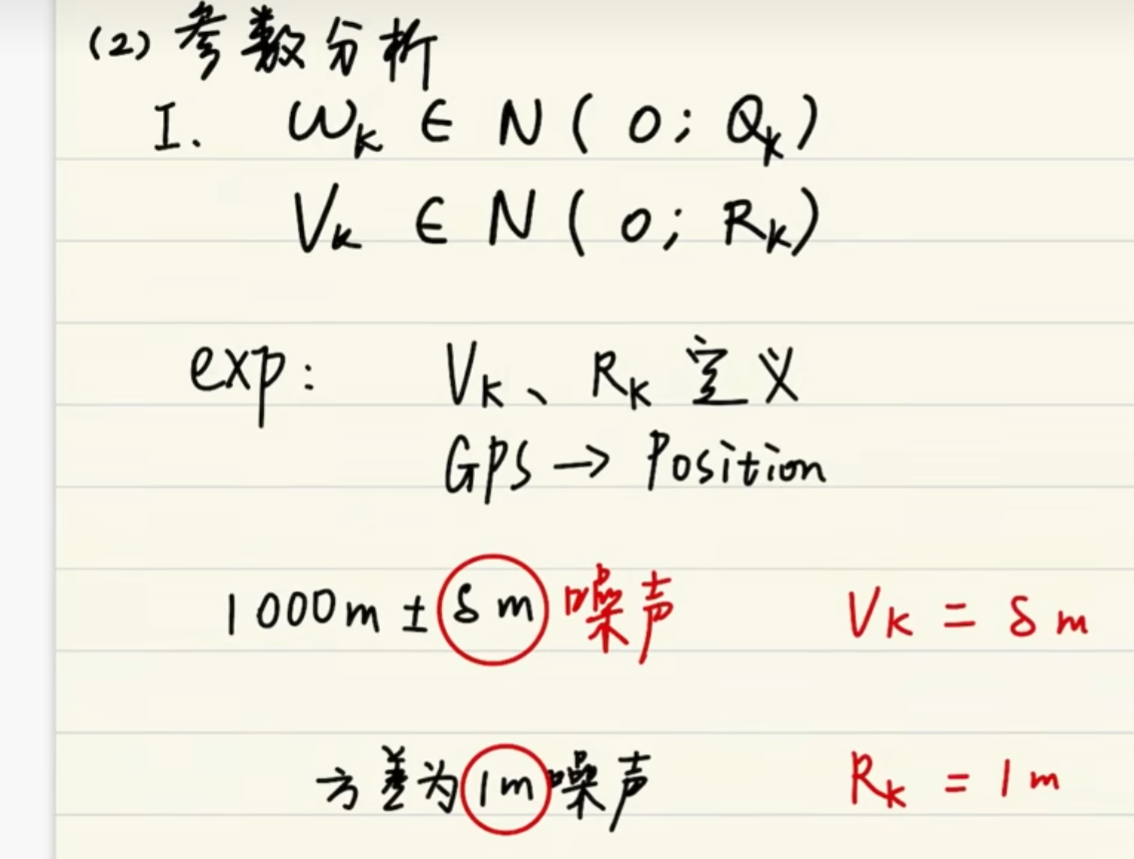 (2) 参数分析
I. ωk ∈ N ( 0; Qk )
Vk ∈ N ( 0; Rk )
exp: Vk、Rk 定义
GPS → Position
1000m ± δm 噪声 Vk = δm
方差为 1m 噪声 Rk = 1m